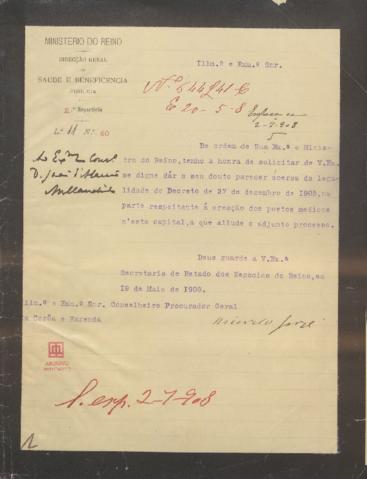 MINISTERIO DO REINO
DIRECÇÃO GERAL
DE
SAUDE E BENEFICENCIA
PUBLICA
2.ª Repartição
L.º 11 N.º 60
Illm.º e Exm.º Snr.
N.º 644 L 41-C
E 20-5-8
2-7-908
De ordem de Sua Ma.e o Minis-
tro do Reino, tenho a honra de solicitar de V.Ex.ª
se digne dár o seu douto parecer ácerca da lega-
lidade do Decreto de 27 de dezembro de 1905, na
parte respeitante á creação dos postos medicos
n'esta capital, a que allude o adjunto processo.
Deus guarde a V.Ex.ª
Secretaria de Estado dos Negocios do Reino, em
19 de Maio de 1908.
Illm.º e Exm.º Snr. Conselheiro Procurador Geral
da Corôa e Fazenda
ARQUIVO
2-7-908